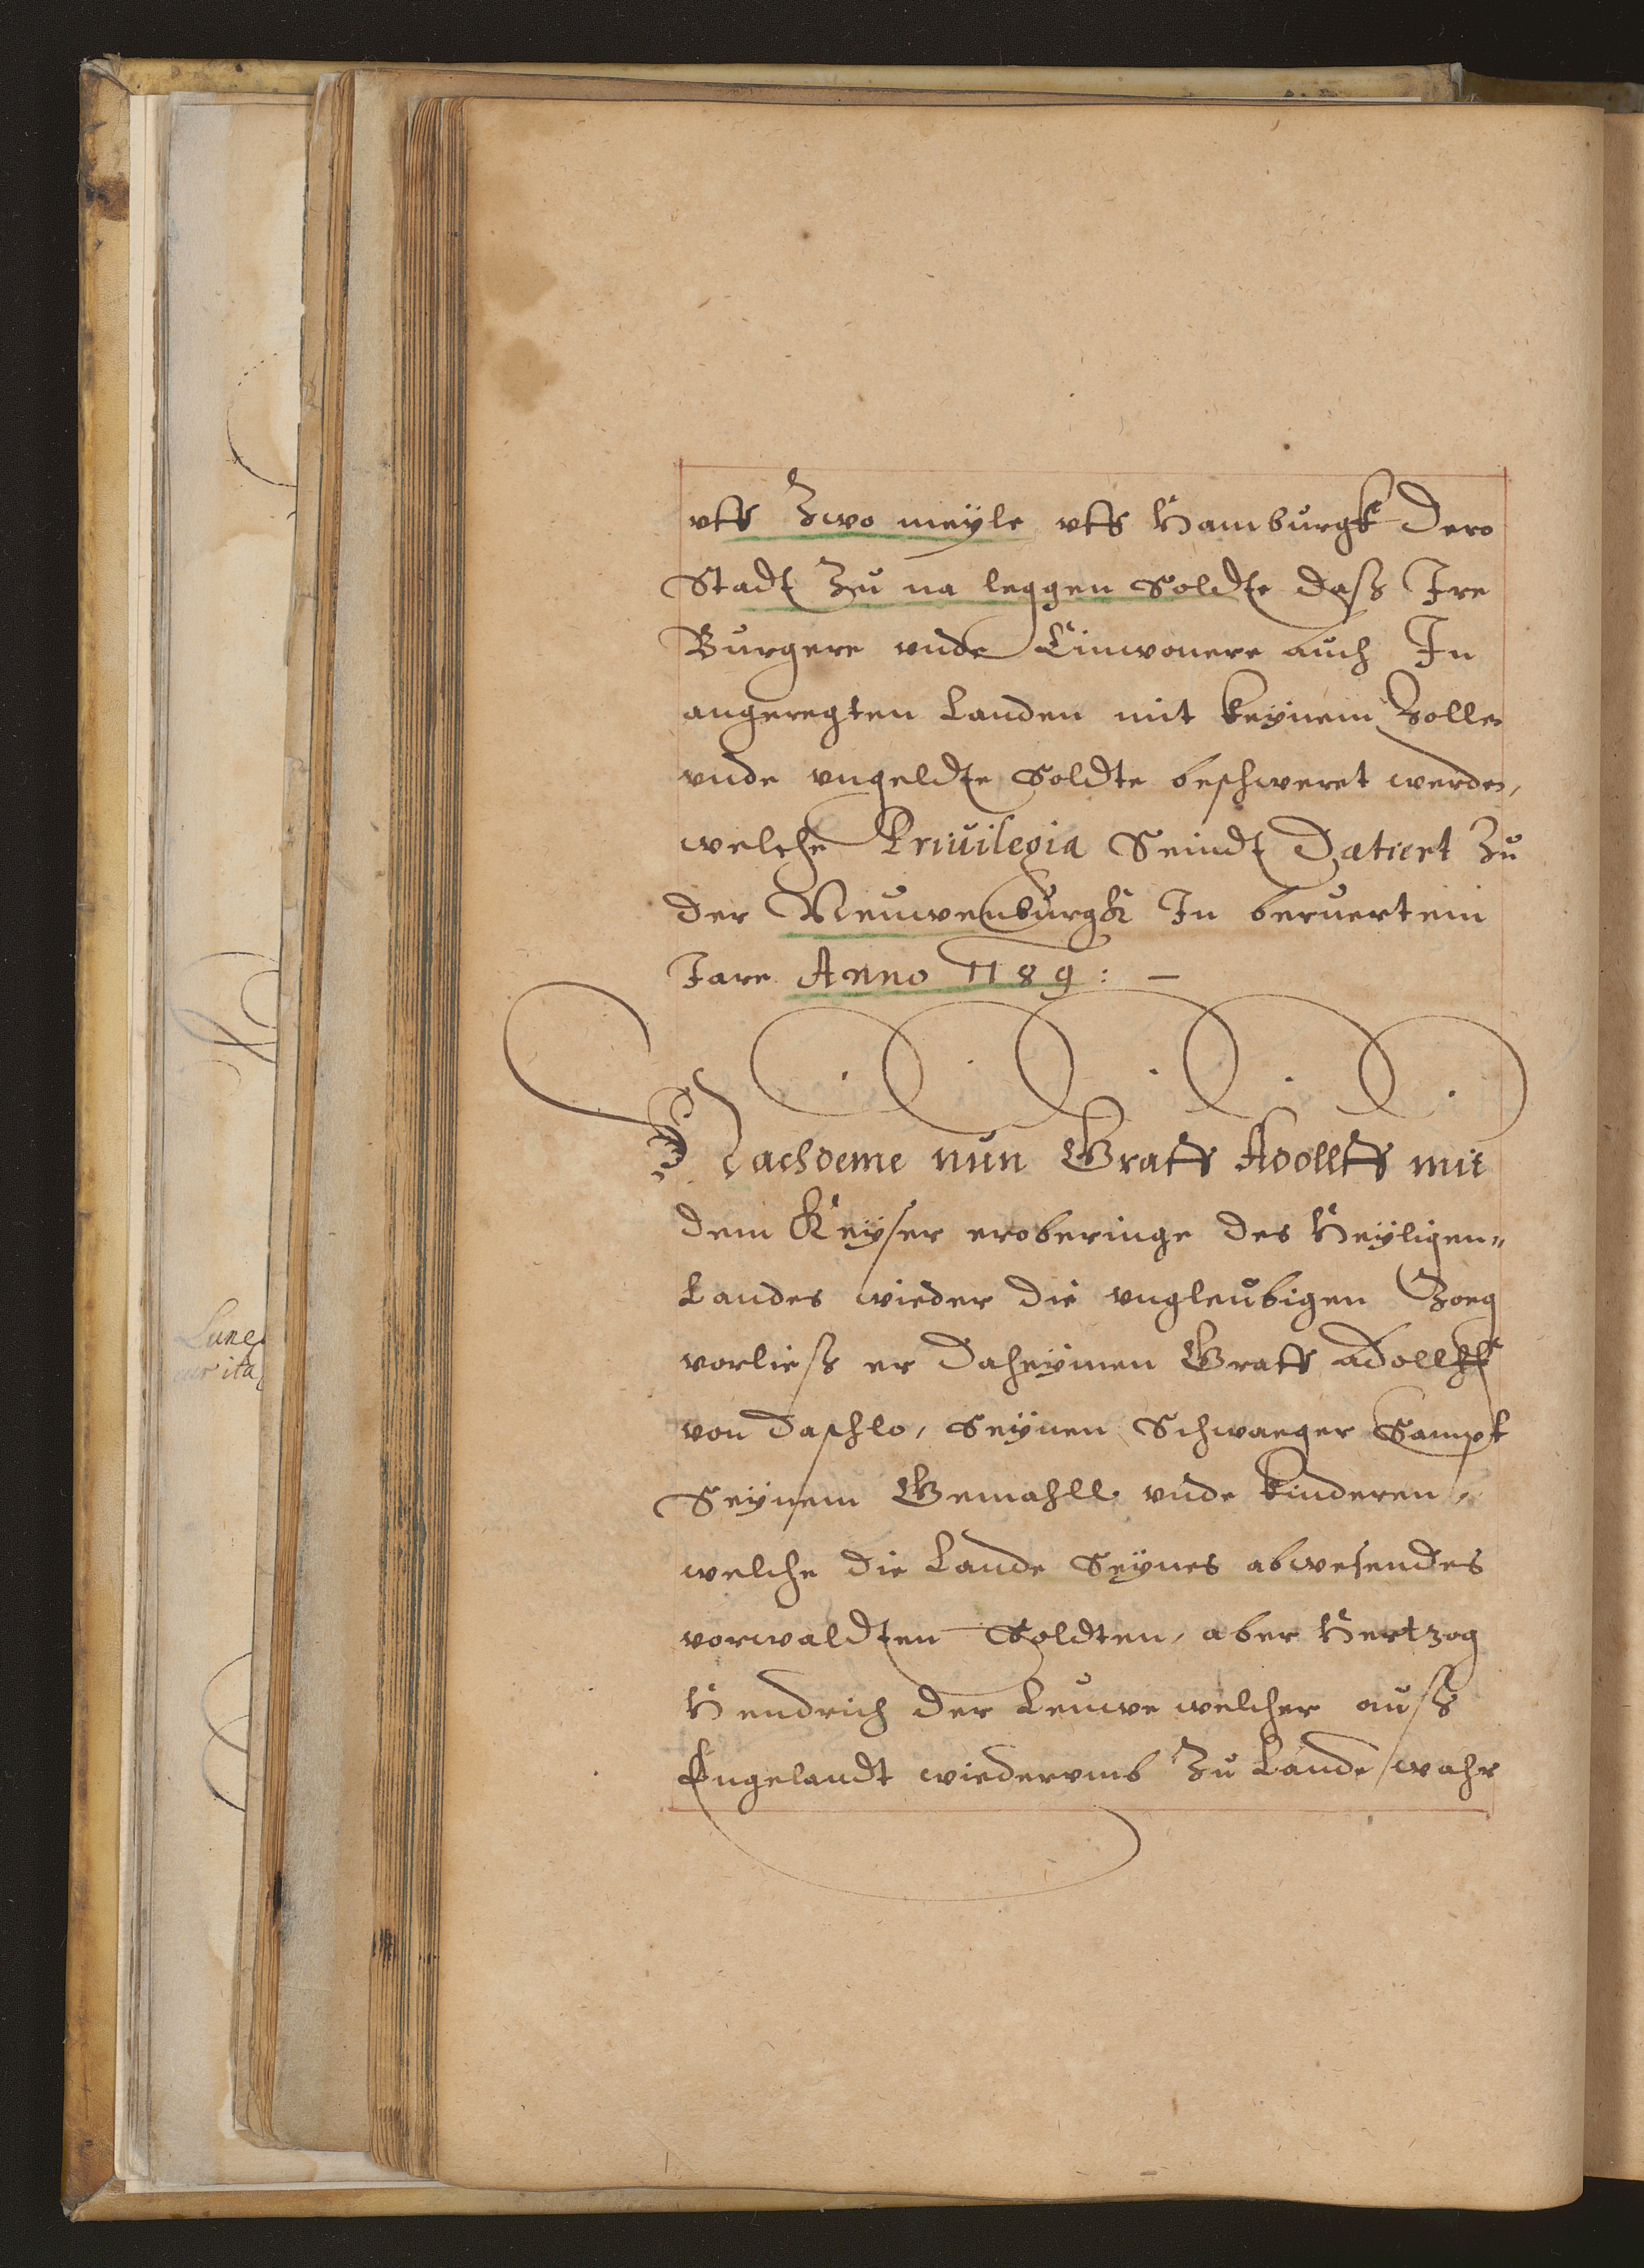 uff Zwo meyle uff Hamburgk dero
Stadt Zu na leggen Soldte daß Ire
Burgere vnde Einwonere auch In
angeregten Landen mit keynem Zolle
vnde vngeldte Soldte beschweret werde,
welche Priuilegia Seindt Datiert Zu
der Neuwenburgk In beruertem
Jare Anno 1189: –
Nachdeme nun Graff Adollff mit
dem Keyser eroberinge des Heyligen„
Landes wieder die vngleubigen Zoeg
vorließ er daheymen Graff Adollff
von Daschlo, Seynen Schwaeger Sampt
Seynem Gemahll vnde kinderen,
welche die Lande Seynes abwesendes
vorwaldten Soldten, aber Hertzog
Hendrich der Leuwe welcher auß
Engelandt wiedervmb Zu Lande wahr
Lune
ita